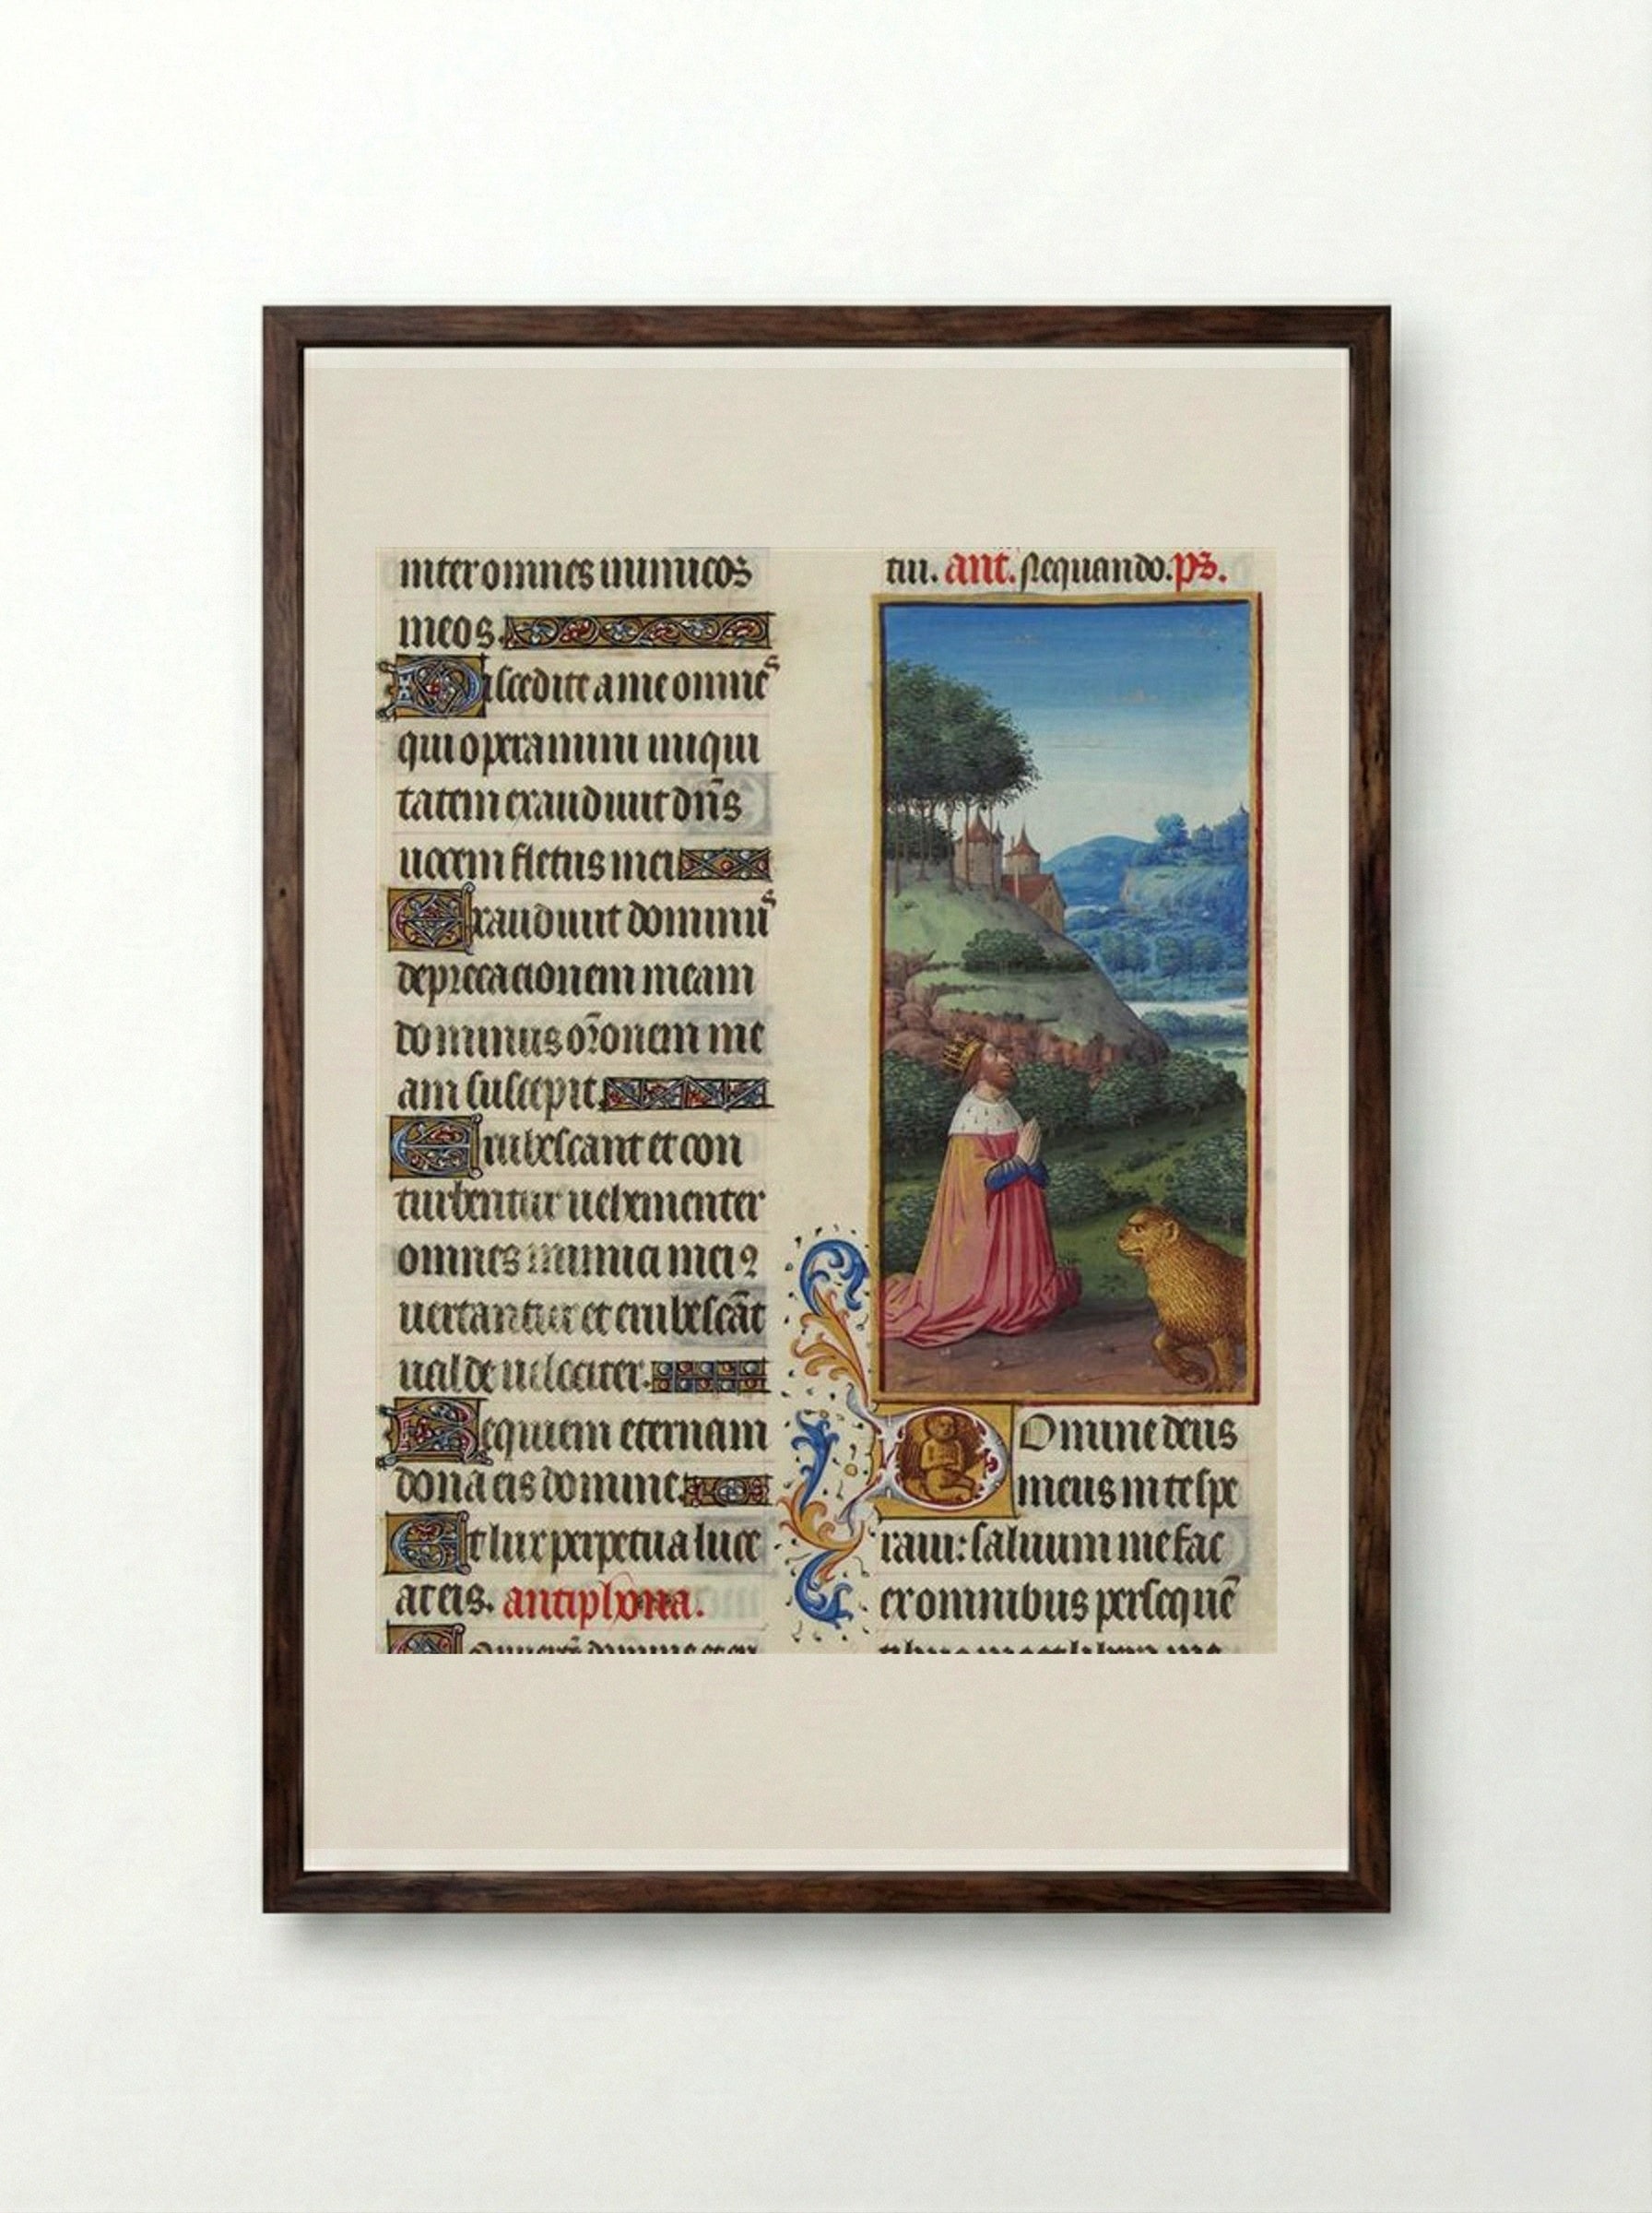 inter omnes inimicos
meos.
Discedite a me omnes
qui operamini iniqui
tatem exaudivit dn̄s
uocem fletus mei
Exaudiuit dominus
deprecationem meam
dominus or̄onem me
am suscepit.
Erubescant et con
turbentur uehementer
omnes inimici mei ꝯ
uertantur et erubescāt
ualde uelociter.
Requiem eternam
dona eis domine.
Et lux perpetua luce
at eis. antiphona.
Conuertē domine et eri
tui. ant. Nequando. ps.
Domine deus
meus in te spe
raui: saluum me fac
ex omnibus persequē
tibus me et libera me